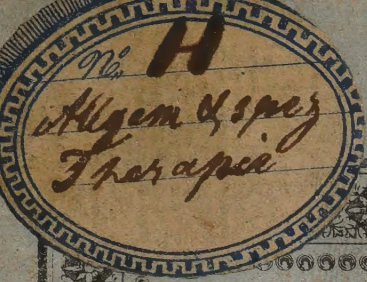 No. H
Allgem & spez
Therapie